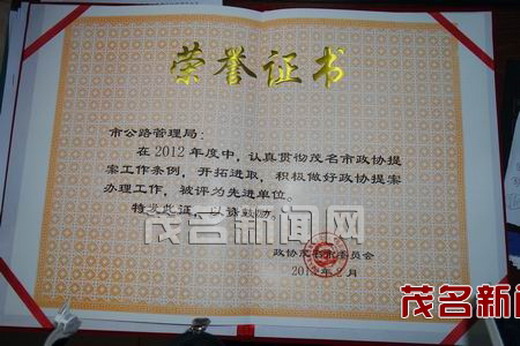 荣誉证书
市公路管理局:
在2012年度中,认真贯彻茂名市政协提
案工作条例,开拓进取,积极做好政协提案
办理工作,被评为先进单位。
特发此证,以资鼓励。
茂名新闻网
政协茂名市委员会
2013年2月
茂名新